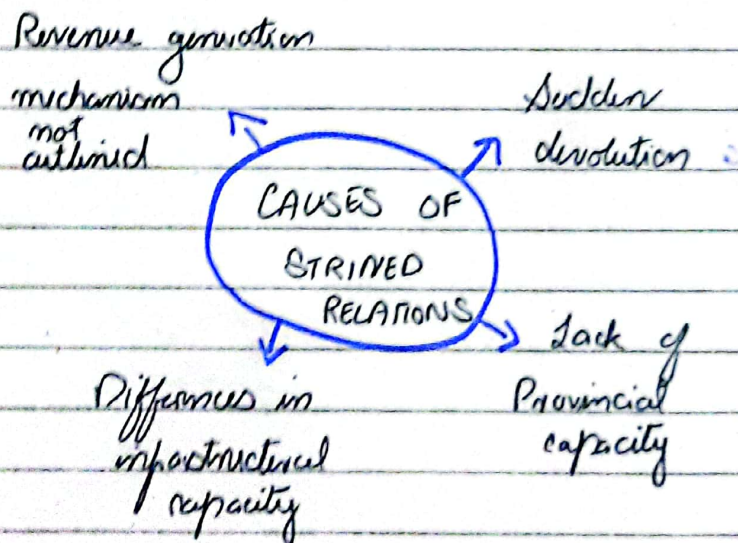 Revenue generation
mechanism
not
outlined
Sudden
devolution
CAUSES OF
STRINED
RELATIONS
Differences in
infrastructural
capacity
Lack of
Provincial
capacity